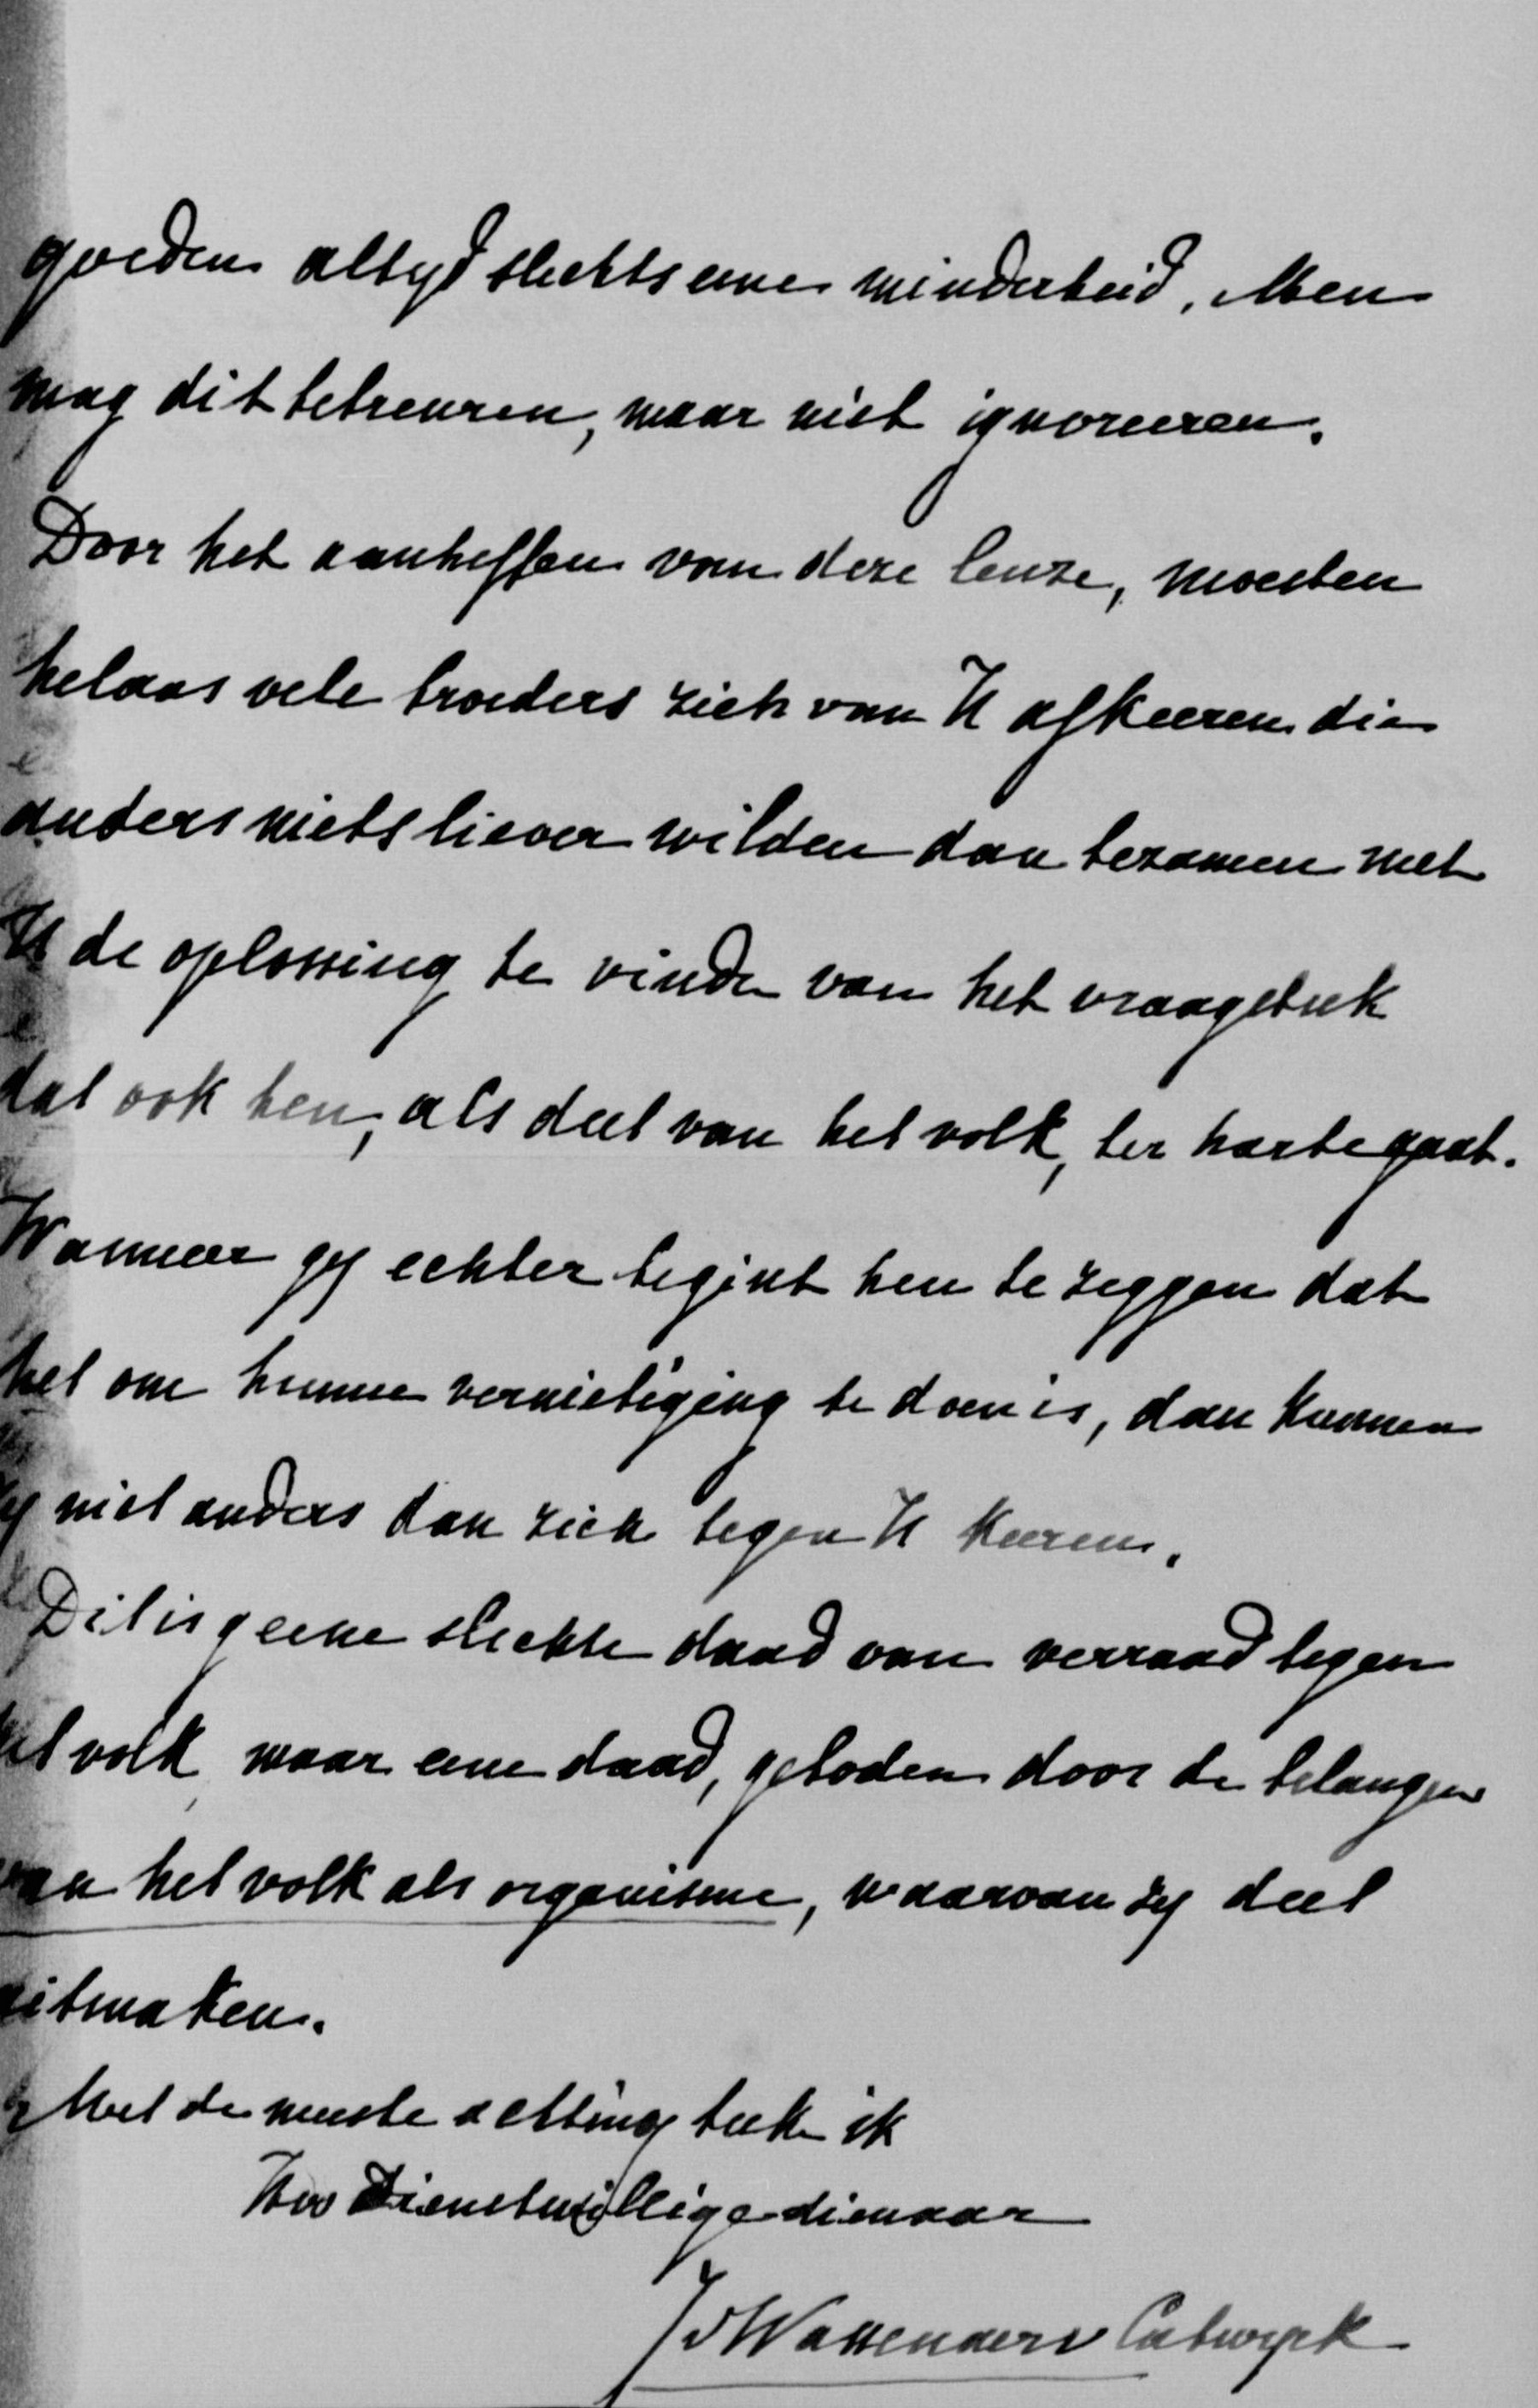 goeden altyd slechts eene minderheid. Men
mag dit betreuren, maar niet ignoreeren.
Door het aanheffen van deze leuze, moesten
helaas vele broeders zich van U afkeeren die
anders niets liever wilden dan tezamen met
U de oplossing te vinden van het vraagstuk
dat ook hen, als deel van het volk, ter harte gaat.
Wanneer gy echter begint hen te zeggen dat
het om hunne vernietiging te doen is, dan kunnen
zy niet anders dan zich tegen U keeren.
Dit is geene slechte daad van verraad tegen
het volk maar eene daad, geboden door de belangen
van het volk als organisme, waarvan zy deel
uitmaken.
Met de meeste achting teeken ik
Uw Dienstwillige dienaar
J v Wassenaer v Catwyck